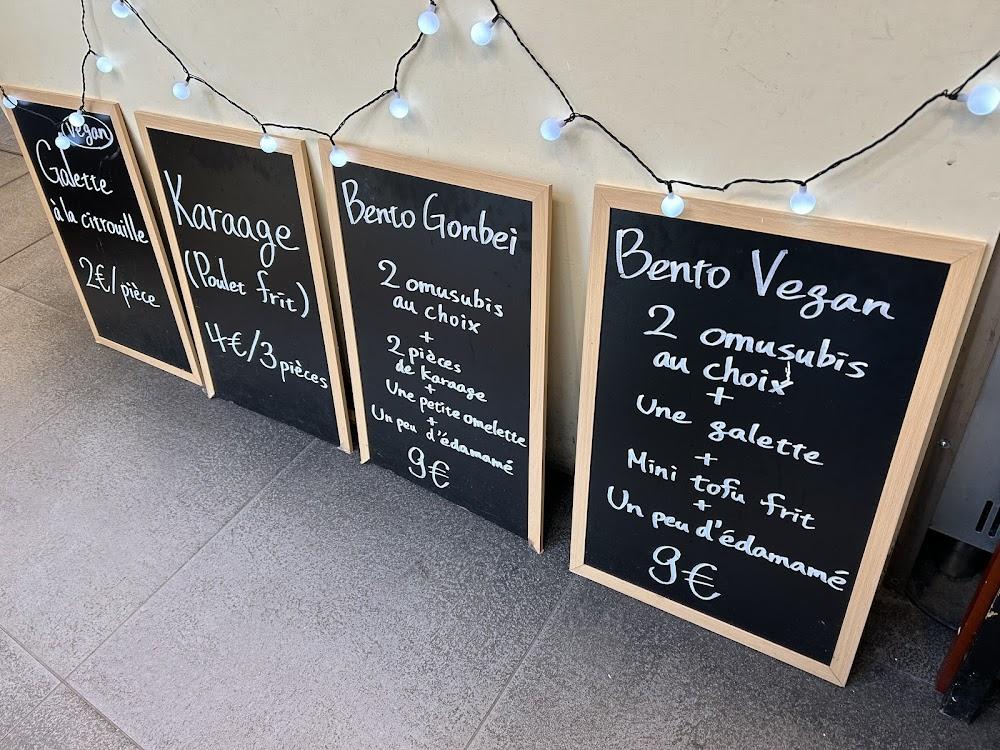 Vegan
Galette
à la citrouille
2€/pièce
Karaage
(Poulet frit)
4€/3 pièces
Bento Gonbei
2 omusubis
au choix
+
2 pièces
de Karaage
+
Une petite omelette
+
Un peu d'édamamé
9€
Bento Vegan
2 omusubis
au choix
+
Une galette
+
Mini tofu frit
+
Un peu d'édamamé
9€